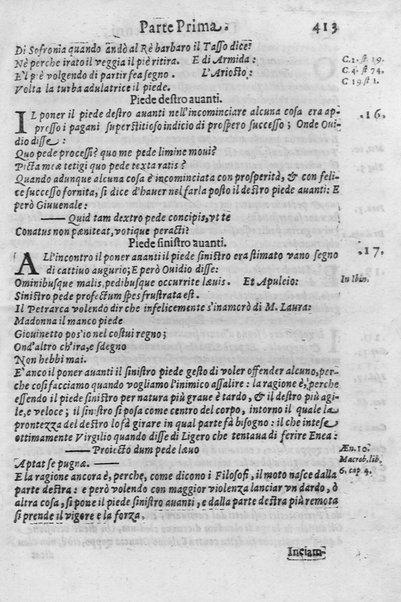 Parte Prima. 413
Di Sofronia quando andò al Rè barbaro il Tasso dice:
Nè perche irato il veggia il piè ritira. E di Armida: C.2. st 19.
E'l piè volgendo di partir fea segno. L'Ariosto: C.4. st 74.
Volta la turba adulatrice il piede. C 19 st 1.
Piede destro auanti.
IL poner il piede destro auanti nell'incominciare alcuna cosa era ap- .16.
presso i pagani superstitioso indicio di prospero successo; Onde Oui-
dio disse:
Quo pede processi? quo me pede limine moui?
Picta meæ tetigi quo pede texta ratis?
Quando adunque alcuna cosa è incominciata con prosperità, & con feli-
ce successo fornita, si dice d'hauer nel farla posto il destro piede auanti: E
però Giuuenale:
—— Quid tam dextro pede concipis, vt te
Conatus non pæniteat, votique peracti?
Piede sinistro auanti.
ALl'incontro il poner auanti il piede sinistro era stimato vano segno .17.
di cattiuo augurio; E però Ouidio disse:
Ominibusque malis, pedibusque occurrite læuis. Et Apulcio: In Ibin.
Sinistro pede profectum spes frustrata est.
Il Petrarca volendo dir che infelicemente s'inamorò di M. Laura:
Madonna il manco piede
Giouinetto pos'io nel costui regno;
Ond'altro ch'ira, e sdegno
Non hebbi mai.
E' anco il poner auanti il sinistro piede gesto di voler offender alcuno, per-
che cosi facciamo quando vogliamo l'inimico assalire: la ragione è, perche
essendo il piede sinistro per natura più graue è tardo, & il destro più agi-
le, e veloce; il sinistro si posa come centro del corpo, intorno il quale la
prontezza del destro lo fà girare in qual parte fà bisogno: il che intese
ottimamente Virgilio quando disse di Ligero che tentaua di ferire Enea:
—— Proiecto dum pede lauo Æn. 10.
Aptat se pugnæ. —— Macrob. lib.
E la ragione ancora è, perche, come dicono i Filosofi, il moto nasce dalla 6. cap 4.
parte destra: e però volendo con maggior violenza lanciar vn dardo, ò
altra cosa, si pone il piede sinistro auanti, e dalla parte destra più remota
si prende il vigore e la forza.
Inciam